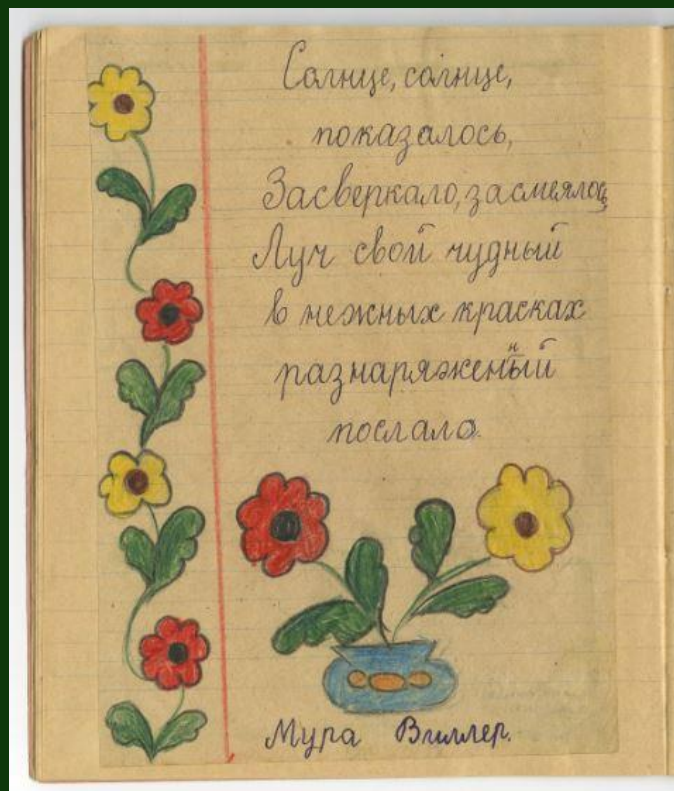 Солнце, солнце,
показалось,
Засверкало, засмеялось
Луч свой чудный
в нежных красках
разнаряженный
послало.
Мура Виллер.